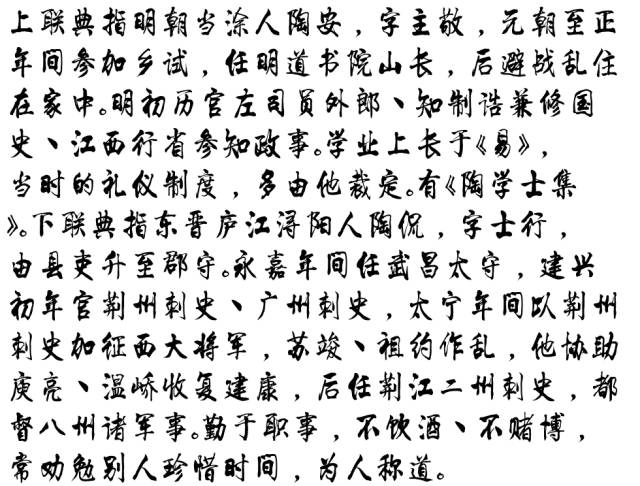 上联典指明朝当涂人陶安，字主敬，元朝至正
年间参加乡试，任明道书院山长，后避战乱住
在家中。明初历官左司员外郎、知制诰兼修国
史、江西行省参知政事。学业上长于《易》，
当时的礼仪制度，多由他裁定。有《陶学士集
》。下联典指东晋庐江浔阳人陶侃，字士行，
由县吏升至郡守。永嘉年间任武昌太守，建兴
初年官荆州刺史、广州刺史，太宁年间以荆州
刺史加征西大将军，苏竣、祖约作乱，他协助
庾亮、温峤收复建康，后任荆江二州刺史，都
督八州诸军事。勤于职事，不饮酒、不赌博，
常劝勉别人珍惜时间，为人称道。